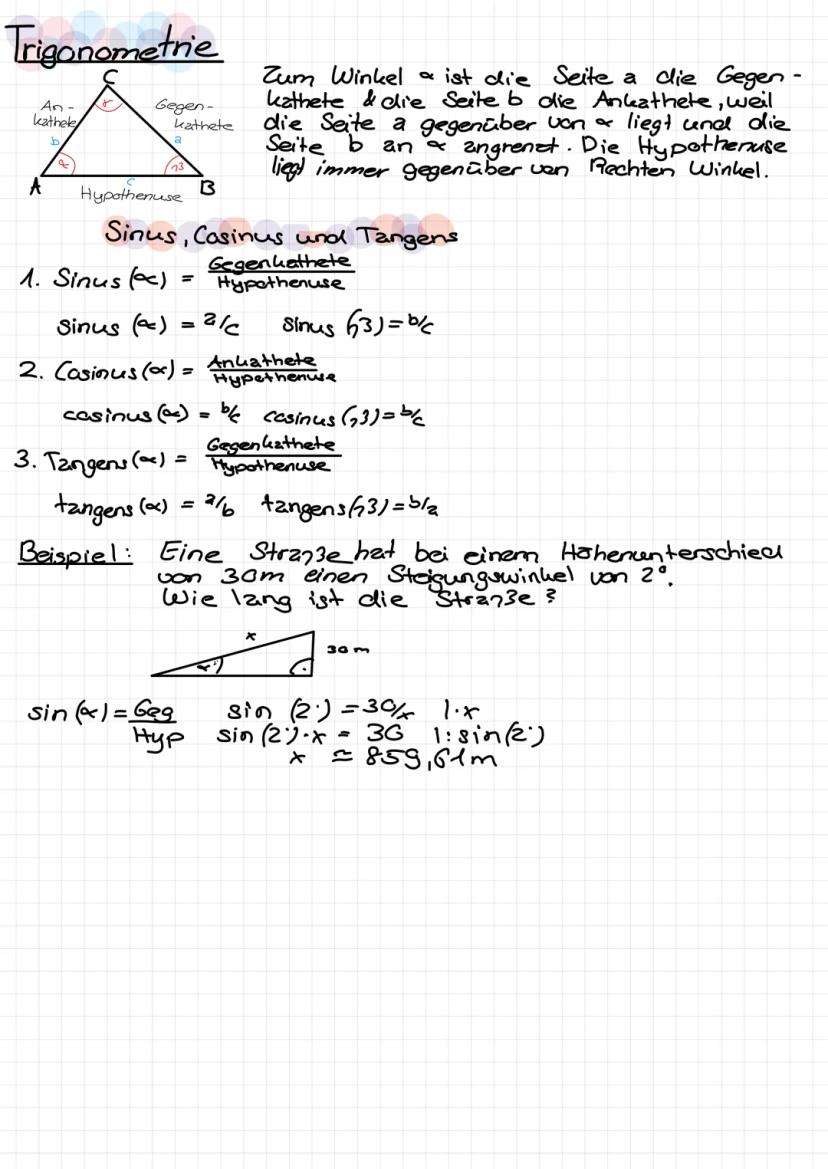 Trigonometrie
C
γ
An-
kathete
Gegen-
kathete
b
a
α
β
A
c
B
Hypothenuse
Zum Winkel α ist die Seite a die Gegen-
kathete & die Seite b die Ankathete, weil
die Seite a gegenüber von α liegt und die
Seite b an α angrenzt. Die Hypothenuse
liegt immer gegenüber von Rechten Winkel.
Sinus, Cosinus und Tangens
1. Sinus (α) = Gegenkathete / Hypothenuse
sinus (α) = a/c sinus (β) = b/c
2. Cosinus (α) = Ankathete / Hypothenuse
cosinus (α) = b/c cosinus (β) = b/c
3. Tangens (α) = Gegenkathete / Hypothenuse
tangens (α) = a/b tangens (β) = b/a
Beispiel: Eine Straße hat bei einem Höhenunterschied
von 30m einen Steigungswinkel von 2°.
Wie lang ist die Straße?
x
30 m
α
sin (α) = Geg / Hyp sin (2°) = 30/x |·x
sin (2°)·x = 30 |: sin (2°)
x ≈ 859,61m